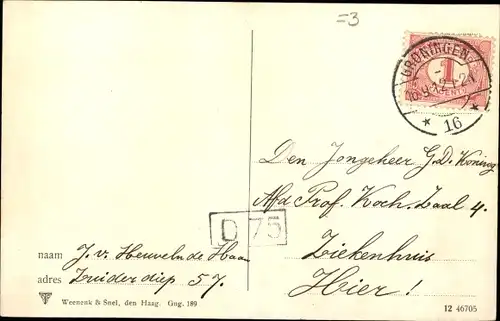 =3
GRONINGEN
1
CENT
16
Den Jongeheer G.D. Koning
Afd Prof. Koch. Zaal 4.
Ziekenhuis
Hier!
D 75
naam J. v. Heuveln de Haan
adres Zuiderdiep 57.
Weenenk & Snel, den Haag. Gug. 189
12 46705